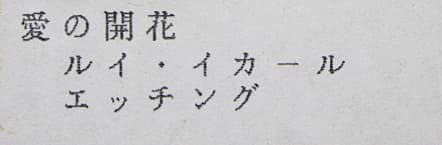 愛の開花
ルイ・イカール
エッチング